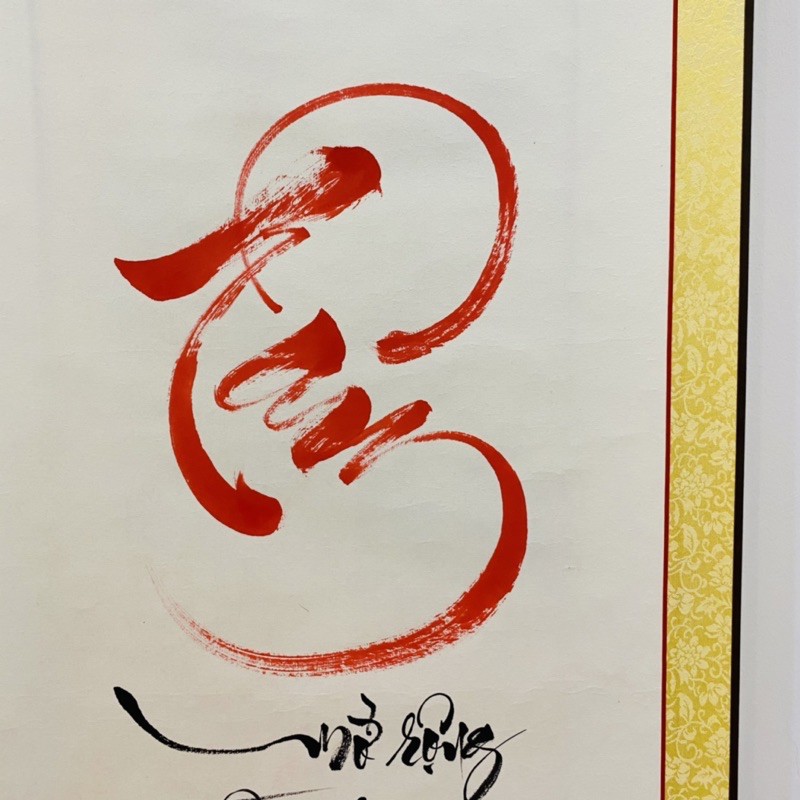 Tâm
mở rộng